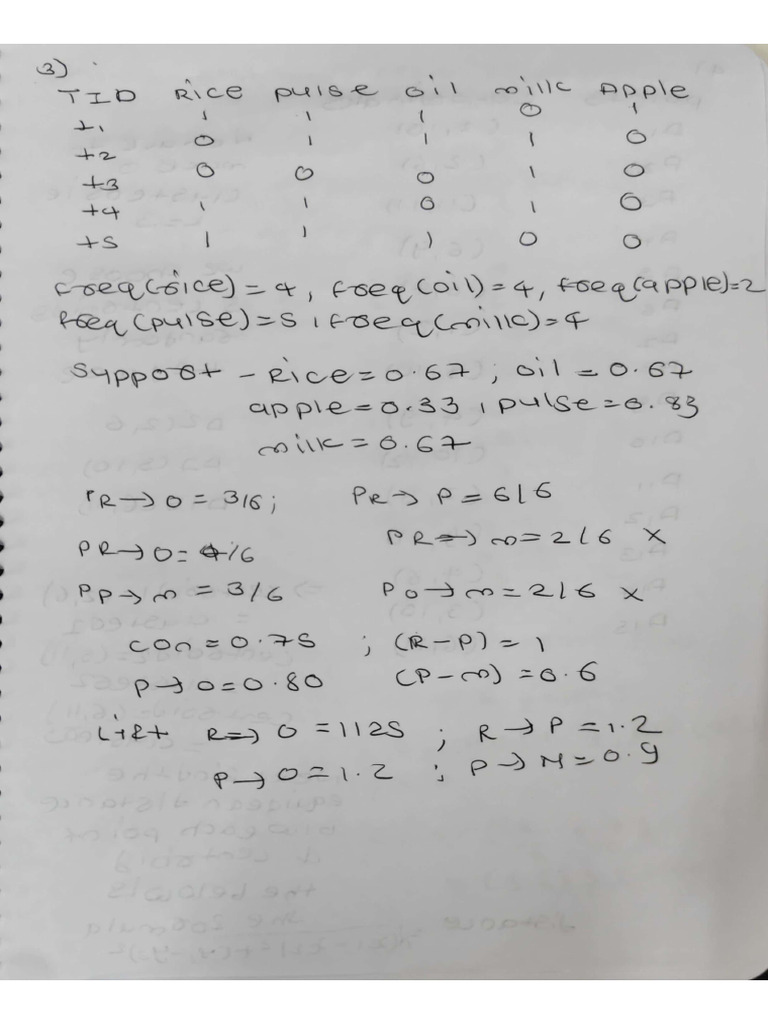 3)
TID Rice pulse oil milk Apple
t1 1 1 1 0 1
t2 0 1 1 1 0
t3 0 0 0 1 0
t4 1 1 0 1 0
t5 1 1 1 0 0
freq(rice) = 4, freq(oil) = 4, freq(apple)=2
freq(pulse) = 5, freq(milk) = 4
Support - Rice = 0.67; oil = 0.67
apple = 0.33, pulse = 0.83
milk = 0.67
PR → O = 3/6; PR → P = 6/6
PR → O = 4/6 PR → m = 2/6 X
PP → m = 3/6 PO → m = 2/6 X
con = 0.75 ; (R-P) = 1
P → O = 0.80 (P-m) = 0.6
Lift R => O = 1125 ; R → P = 1.2
P → O = 1.2 ; P → M = 0.9